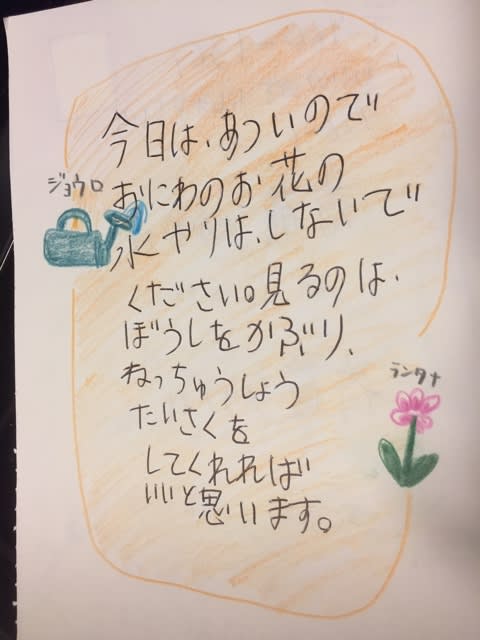 今日は、あついので
ジョウロ
おにわのお花の
水やりは、しないで
ください。見るのは、
ぼうしをかぶり、
ランタナ
ねっちゅうしょう
たいさくを
してくれれば
いいと思います。